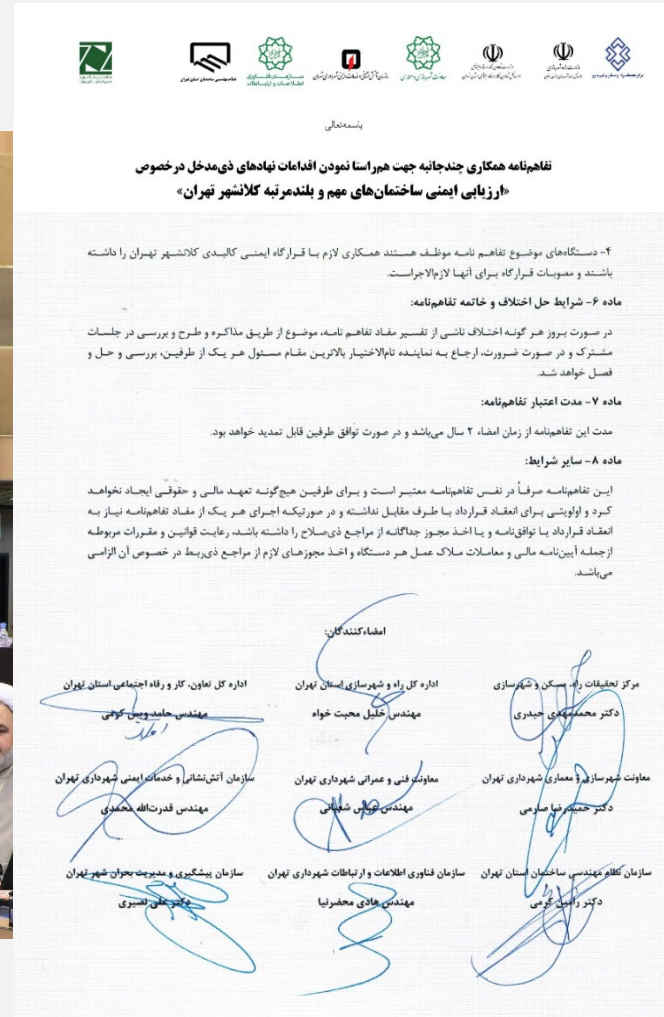 نظام مهندسی ساختمان استان تهران
باسمه‌تعالی
تفاهم‌نامه همکاری چندجانبه جهت هم‌راستا نمودن اقدامات نهادهای ذی‌مدخل درخصوص
«ارزیابی ایمنی ساختمان‌های مهم و بلندمرتبه کلانشهر تهران»
۴- دستگاه‌های موضوع تفاهم نامه موظف هستند همکاری لازم با قرارگاه ایمنی کالبدی کلانشهر تهران را داشته
باشند و مصوبات قرارگاه برای آنها لازم‌الاجراست.
ماده ۶- شرایط حل اختلاف و خاتمه تفاهم‌نامه:
در صورت بروز هر گونه اختلاف ناشی از تفسیر مفاد تفاهم نامه، موضوع از طریق مذاکره و طرح و بررسی در جلسات
مشترک و در صورت ضرورت، ارجاع به نماینده تام‌الاختیار بالاترین مقام مسئول هر یک از طرفین، بررسی و حل و
فصل خواهد شد.
ماده ۷- مدت اعتبار تفاهم‌نامه:
مدت این تفاهم‌نامه از زمان امضاء ۲ سال می‌باشد و در صورت توافق طرفین قابل تمدید خواهد بود.
ماده ۸- سایر شرایط:
این تفاهم‌نامه صرفاً در نفس تفاهم‌نامه معتبر است و برای طرفین هیچ‌گونه تعهد مالی و حقوقی ایجاد نخواهد
کرد و اولویتی برای انعقاد قرارداد با طرف مقابل نداشته و در صورتیکه اجرای هر یک از مفاد تفاهم‌نامه نیاز به
انعقاد قرارداد یا توافق‌نامه و یا اخذ مجوز جداگانه از مراجع ذی‌صلاح را داشته باشد، رعایت قوانین و مقررات مربوطه
ازجمله آیین‌نامه مالی و معاملات ملاک عمل هر دستگاه و اخذ مجوزهای لازم از مراجع ذی‌ربط در خصوص آن الزامی
می‌باشد.
امضاءکنندگان:
مرکز تحقیقات راه، مسکن و شهرسازی اداره کل راه و شهرسازی استان تهران اداره کل تعاون، کار و رفاه اجتماعی استان تهران
دکتر محمدمهدی حیدری مهندس خلیل محبت خواه مهندس حامد ویس کرمی
معاونت شهرسازی و معماری شهرداری تهران معاونت فنی و عمرانی شهرداری تهران سازمان آتش‌نشانی و خدمات ایمنی شهرداری تهران
دکتر حمیدرضا صارمی مهندس عباس شعبانی مهندس قدرت‌الله محمدی
سازمان نظام مهندسی ساختمان استان تهران سازمان فناوری اطلاعات و ارتباطات شهرداری تهران سازمان پیشگیری و مدیریت بحران شهر تهران
دکتر رامین کرمی مهندس هادی محضرنیا دکتر علی نصیری